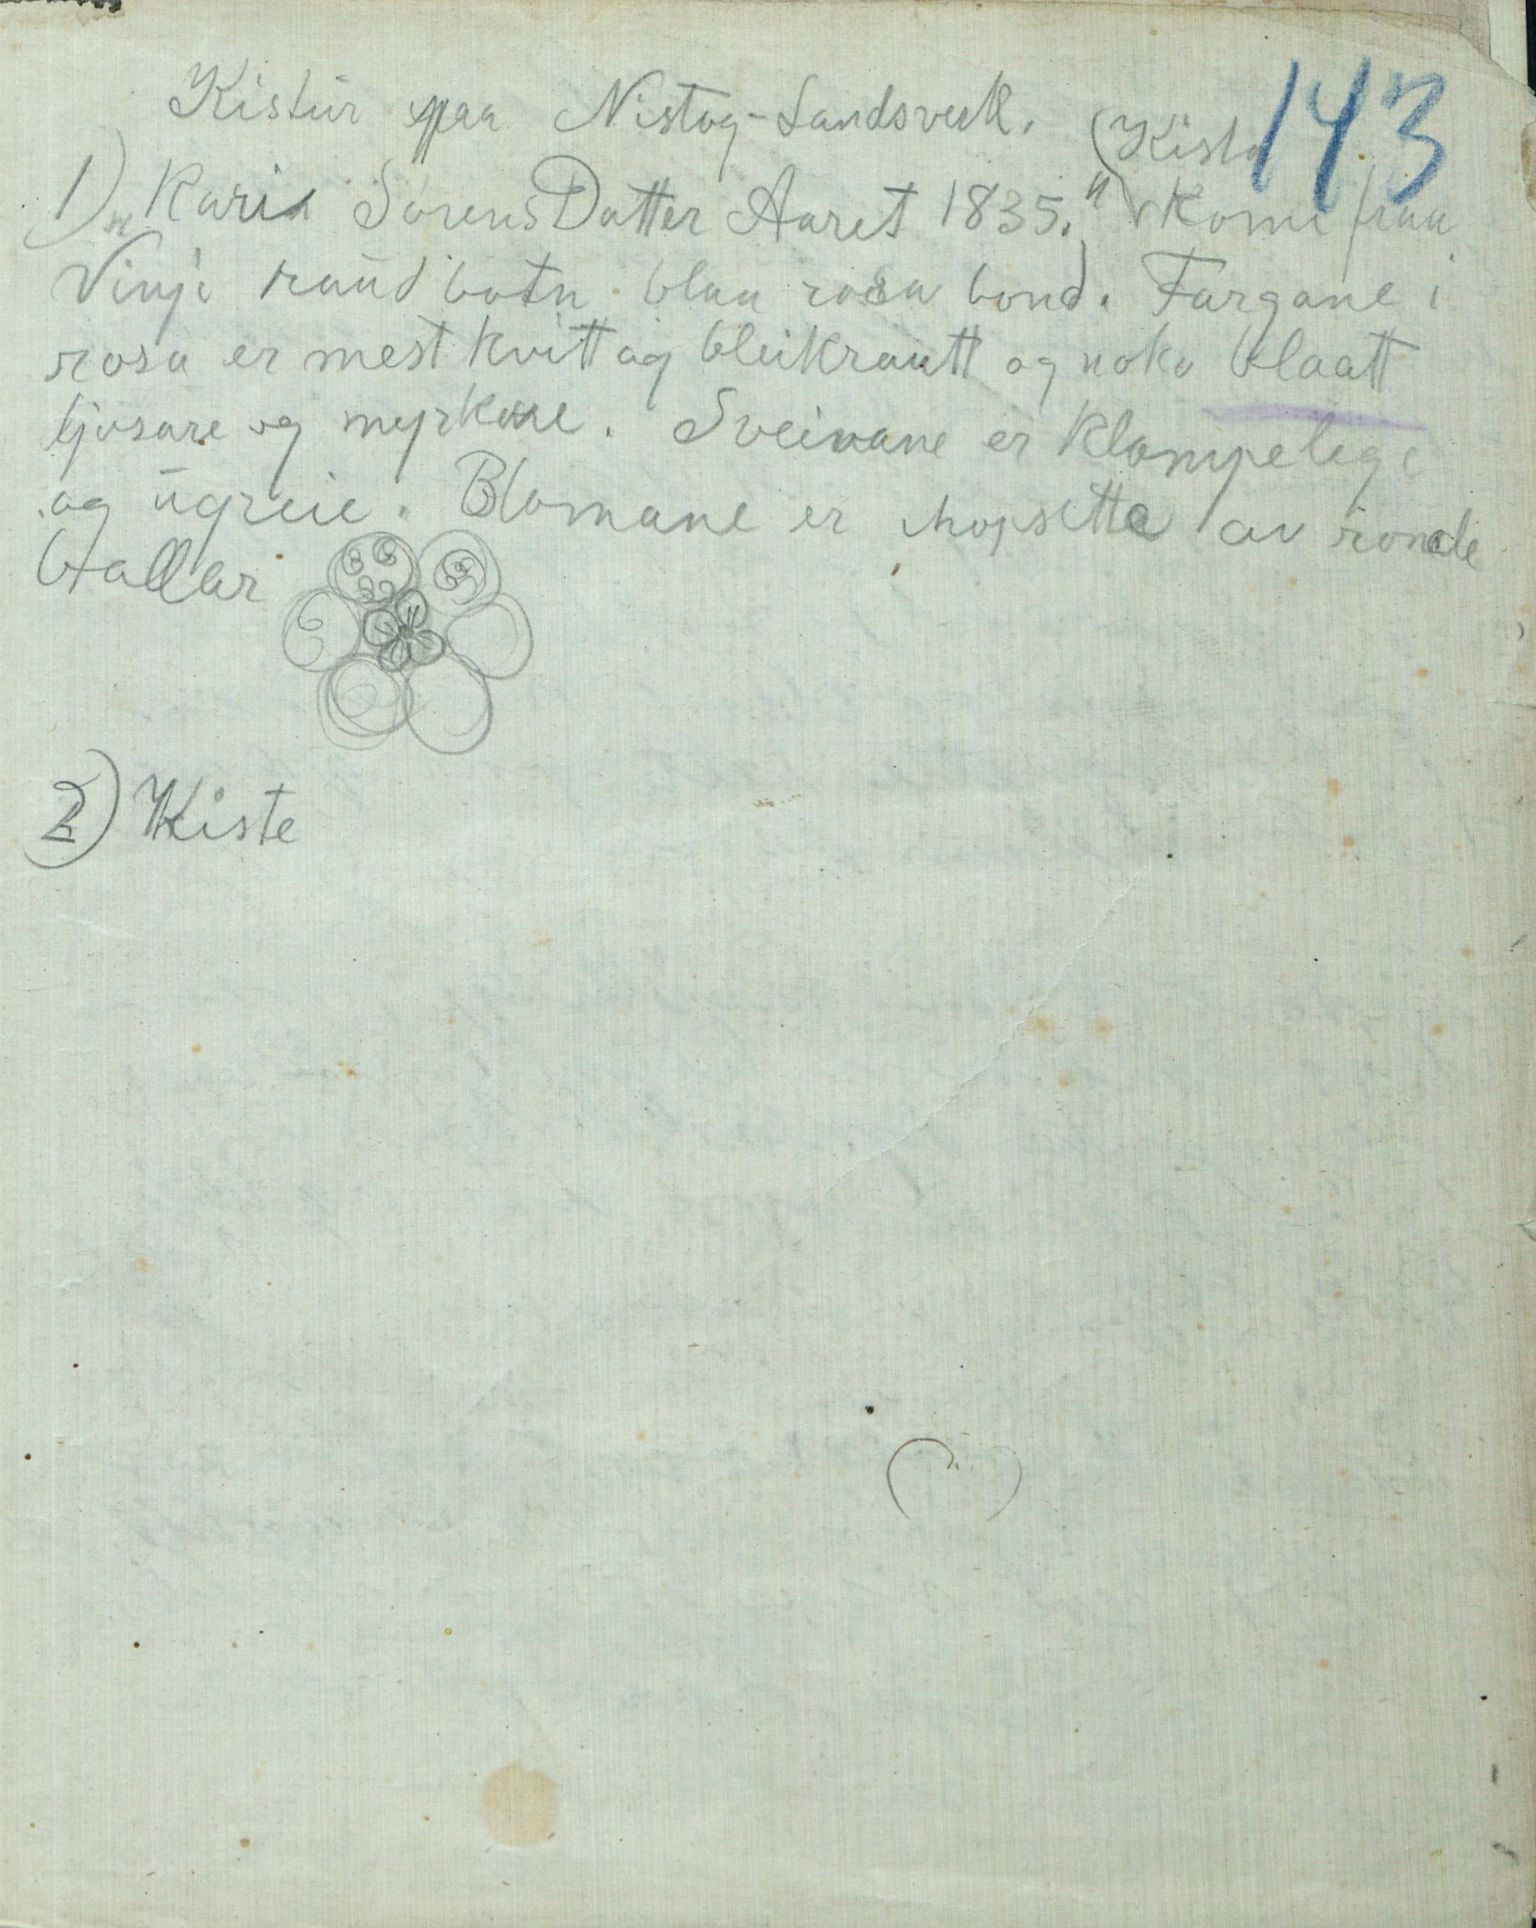 143
Kistur paa Nistog-Landsverk.
(Kista
1) "Kari SørensDatter Aaret 1835." kome fraa
Vinje) raud botn blaa rosa bond. Fargane i
rosa er mest kvitt og bleikrautt og noko blaatt
ljosare og myrkare. Sveivane er klompelege
og ugreie. Blomane er ihopsette av ronde
ballar
2) Kiste